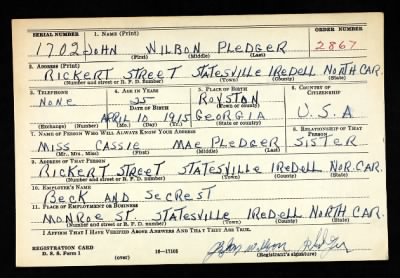 SERIAL NUMBER 1. NAME (Print) ORDER NUMBER
1702 JOHN WILBON PLEDGER 2867
(First) (Middle) (Last)
2. ADDRESS (Print)
RICKERT STREET STATESVILLE IREDELL NORTH CAR.
(Number and street or R. F. D. number) (Town) (County) (State)
3. TELEPHONE 4. AGE IN YEARS 5. PLACE OF BIRTH 6. COUNTRY OF CITIZENSHIP
NONE 25 ROYSTON
DATE OF BIRTH (Town or county)
APRIL 10 1915 GEORGIA U.S.A
(Exchange) (Number) (Mo.) (Day) (Yr.) (State or country)
7. NAME OF PERSON WHO WILL ALWAYS KNOW YOUR ADDRESS 8. RELATIONSHIP OF THAT PERSON
MISS CASSIE MAE PLEDGER SISTER
(Mr., Mrs., Miss) (First) (Middle) (Last)
9. ADDRESS OF THAT PERSON
RICKERT STREET STATESVILLE IREDELL NOR.CAR.
(Number and street or R. F. D. number) (Town) (County) (State)
10. EMPLOYER'S NAME
BECK AND SECREST
11. PLACE OF EMPLOYMENT OR BUSINESS
MONROE ST. STATESVILLE IREDELL NORTH CAR.
(Number and street or R. F. D. number) (Town) (County) (State)
I AFFIRM THAT I HAVE VERIFIED ABOVE ANSWERS AND THAT THEY ARE TRUE.
REGISTRATION CARD
D. S. S. Form 1 (over) 16—17105
(Registrant's signature)